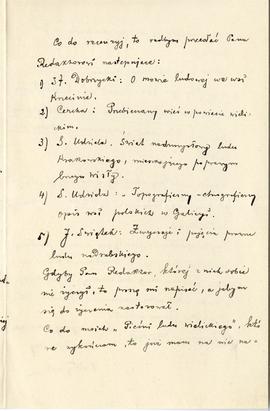 Co do recenzyj, to radbym przesłać Panu
Redaktorowi następujące:
1) St. Dobrzycki: O mowie ludowej we wsi
Krzęcinie.
2) Cercha: Przebieczany wieś w powiecie wielic-
kim.
3) S. Udziela. Świat nadzmysłowy ludu
Krakowskiego, mieszkającego po prawym
brzegu Wisły.
4) S. Udziela: Topograficzny-etnograficzny
opis wsi polskich w Galicyi.
5) J. Świętek: Zwyczaje i pojęcia prawne
ludu nadrabskiego.
Gdyby Pan Redaktor, której z nich sobie
nie życzył, to proszę mi napisać, a jabym
się do życzenia zastosował.
Co do moich "Pieśni ludu wielickiego", któ-
re wykończam, to już mam na nie na-